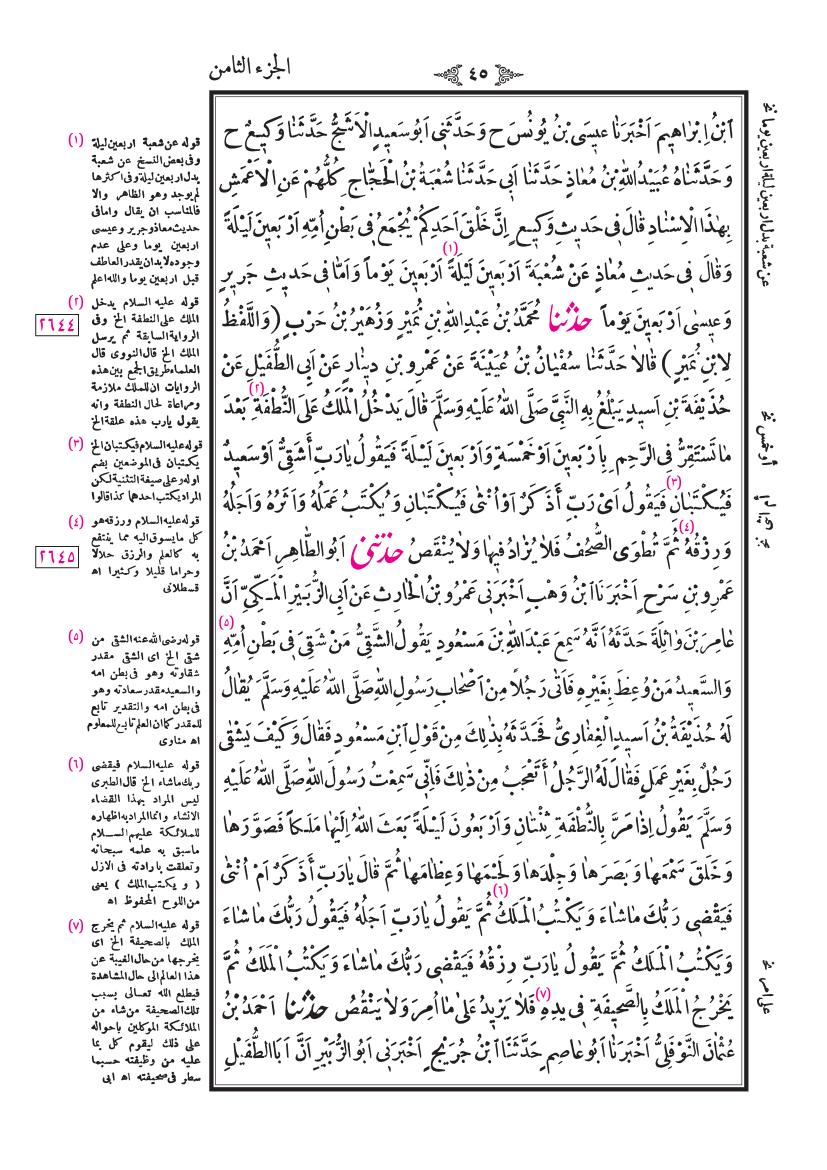 ٤٥
الجزء الثامن
اَبْنُ اِبْرَاهِيمَ اَخْبَرَنَا عِيسَى بْنُ يُونُسَ ح وَحَدَّثَنِى اَبُو سَعِيدٍ الْاَشَجُّ حَدَّثَنَا وَكِيعٌ ح
وَحَدَّثَنَاهُ عُبَيْدُ اللهِ بْنُ مُعَاذٍ حَدَّثَنَا اَبِى حَدَّثَنَا شُعْبَةُ بْنُ الْحَجَّاجِ كُلُّهُمْ عَنِ الْاَعْمَشِ
بِهٰذَا الْاِسْنَادِ قَالَ فِى حَدِيثِ وَكِيعٍ اِنَّ خَلْقَ اَحَدِكُمْ يُجْمَعُ فِى بَطْنِ اُمِّهِ اَرْبَعِينَ لَيْلَةً
وَقَالَ فِى حَدِيثِ مُعَاذٍ عَنْ شُعْبَةَ (١) اَرْبَعِينَ لَيْلَةً اَرْبَعِينَ يَوْماً وَاَمَّا فِى حَدِيثِ جَرِيرٍ
وَعِيسَى اَرْبَعِينَ يَوْماً حَدَّثَنَا مُحَمَّدُ بْنُ عَبْدِ اللهِ بْنِ نُمَيْرٍ وَزُهَيْرُ بْنُ حَرْبٍ (وَاللَّفْظُ
لِابْنِ نُمَيْرٍ) قَالَا حَدَّثَنَا سُفْيَانُ بْنُ عُيَيْنَةَ عَنْ عَمْرِو بْنِ دِينَارٍ عَنْ اَبِى الطُّفَيْلِ عَنْ
حُذَيْفَةَ بْنِ اَسِيدٍ يَبْلُغُ بِهِ النَّبِىَّ صَلَّى اللهُ عَلَيْهِ وَسَلَّمَ قَالَ يَدْخُلُ الْمَلَكُ عَلَى النُّطْفَةِ (٢) بَعْدَ
مَا تَسْتَقِرُّ فِى الرَّحِمِ بِاَرْبَعِينَ اَوْ خَمْسَةٍ وَاَرْبَعِينَ لَيْلَةً فَيَقُولُ يَارَبِّ أَشَقِىٌّ اَوْ سَعِيدٌ
فَيُكْتَبَانِ فَيَقُولُ اَىْ رَبِّ أَذَكَرٌ اَوْ اُنْثَى فَيُكْتَبَانِ (٣) وَيُكْتَبُ عَمَلُهُ وَاَثَرُهُ وَاَجَلُهُ
وَرِزْقُهُ ثُمَّ تُطْوَى الصُّحُفُ (٤) فَلَا يُزَادُ فِيهَا وَلَا يُنْقَصُ حَدَّثَنِى اَبُو الطَّاهِرِ اَحْمَدُ بْنُ
عَمْرِو بْنِ سَرْحٍ اَخْبَرَنَا ابْنُ وَهْبٍ اَخْبَرَنِى عَمْرُو بْنُ الْحَارِثِ عَنْ اَبِى الزُّبَيْرِ الْمَكِّىِّ اَنَّ
عَامِرَ بْنَ وَاثِلَةَ حَدَّثَهُ اَنَّهُ سَمِعَ عَبْدَ اللهِ بْنَ مَسْعُودٍ يَقُولُ الشَّقِىُّ مَنْ شَقِىَ فِى بَطْنِ اُمِّهِ (٥)
وَالسَّعِيدُ مَنْ وُعِظَ بِغَيْرِهِ فَاَتَى رَجُلاً مِنْ اَصْحَابِ رَسُولِ اللهِ صَلَّى اللهُ عَلَيْهِ وَسَلَّمَ يُقَالُ
لَهُ حُذَيْفَةُ بْنُ اَسِيدٍ الْغِفَارِىُّ فَحَدَّثَهُ بِذٰلِكَ مِنْ قَوْلِ ابْنِ مَسْعُودٍ فَقَالَ وَكَيْفَ يَشْقَى
رَجُلٌ بِغَيْرِ عَمَلٍ فَقَالَ لَهُ الرَّجُلُ أَتَعْجَبُ مِنْ ذٰلِكَ فَاِنِّى سَمِعْتُ رَسُولَ اللهِ صَلَّى اللهُ عَلَيْهِ
وَسَلَّمَ يَقُولُ اِذَا مَرَّ بِالنُّطْفَةِ ثِنْتَانِ وَاَرْبَعُونَ لَيْلَةً بَعَثَ اللهُ اِلَيْهَا مَلَكاً فَصَوَّرَهَا
وَخَلَقَ سَمْعَهَا وَبَصَرَهَا وَجِلْدَهَا وَلَحْمَهَا وَعِظَامَهَا ثُمَّ قَالَ يَارَبِّ أَذَكَرٌ اَمْ اُنْثَى
فَيَقْضِى رَبُّكَ مَا شَاءَ وَيَكْتُبُ الْمَلَكُ (٦) ثُمَّ يَقُولُ يَارَبِّ اَجَلُهُ فَيَقُولُ رَبُّكَ مَا شَاءَ
وَيَكْتُبُ الْمَلَكُ ثُمَّ يَقُولُ يَارَبِّ رِزْقُهُ فَيَقْضِى رَبُّكَ مَا شَاءَ وَيَكْتُبُ الْمَلَكُ ثُمَّ
يَخْرُجُ الْمَلَكُ بِالصَّحِيفَةِ فِى يَدِهِ (٧) فَلَا يَزِيدُ عَلَى مَا اُمِرَ وَلَا يَنْقُصُ حَدَّثَنَا اَحْمَدُ بْنُ
عُثْمَانَ النَّوْفَلِىُّ اَخْبَرَنَا اَبُو عَاصِمٍ حَدَّثَنَا ابْنُ جُرَيْجٍ اَخْبَرَنِى اَبُو الزُّبَيْرِ اَنَّ اَبَا الطُّفَيْلِ
(١) قوله عن شعبة اربعين ليلة
وفى بعض النسخ عن شعبة
بدل اربعين ليلة وفى اكثرها
لم يوجد وهو الظاهر والا
فالمناسب ان يقال واما فى
حديث معاذ وجرير وعيسى
اربعين يوما وعلى عدم
وجوده لابد ان يقدر العاطف
قبل اربعين يوما والله اعلم
(٢) قوله عليه السلام يدخل
الملك على النطفة الخ وفى
الرواية السابقة ثم يرسل
الملك الخ قال النووى قال
العلماء طريق الجمع بين هذه
الروايات ان للملك ملازمة
ومراعاة لحال النطفة وانه
يقول يارب هذه علقة الخ
(٣) قوله عليه السلام فيكتبان الخ
يكتبان فى الموضعين بضم
اوله وعلى صيغة التثنية لكن
المراد يكتب احدهما كذا قالوا
(٤) قوله عليه السلام ورزقه هو
كل ما يسوق اليه مما ينتفع
به كالعلم والرزق حلالا
وحراما قليلا وكثيرا اه
قسطلانى
(٥) قوله رضى الله عنه الشقى من
شقى الخ اى الشقى مقدر
شقاوته وهو فى بطن امه
والسعيد مقدر سعادته وهو
فى بطن امه والتقدير تابع
للمقدر كما ان العلم تابع للمعلوم
اه مناوى
(٦) قوله عليه السلام فيقضى
ربك ما شاء الخ قال الطبرى
ليس المراد بهذا القضاء
الانشاء وانما المراد به اظهاره
للملائكة عليهم السلام
ما سبق به علمه سبحانه
وتعلقت بارادته فى الازل
( ويكتب الملك ) يعنى
من اللوح المحفوظ اه
(٧) قوله عليه السلام ثم يخرج
الملك بالصحيفة الخ اى
يخرجها من حال الغيبة عن
هذا العالم الى حال المشاهدة
فيطلع الله تعالى بسبب
تلك الصحيفة من شاء من
الملائكة الموكلين باحواله
على ذلك ليقوم كل بما
عليه من وظيفته حسبما
سطر فى صحيفته اه ابى
٢٦٤٤
٢٦٤٥
عن شعبة بدل اربعين ليلة اربعين يوما نخ
أو خمس نخ
على امر نخ